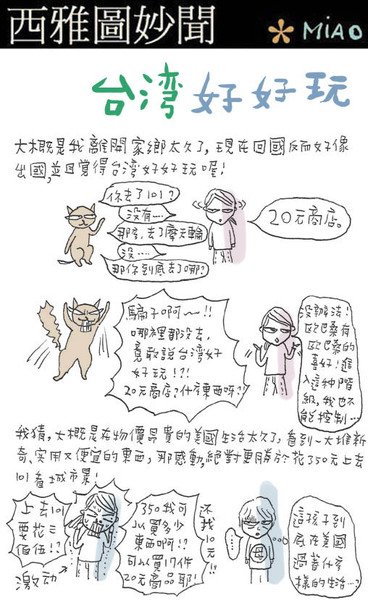 西雅圖妙聞
* MiAO
台湾好好玩
大概是我離開家鄉太久了,現在回國反而好像
出國,並且覺得台湾好好玩喔!
你去了101?
沒有…
那…去了摩天輪
沒…
那你到底去了哪?
20元商店。
騙子啊~!!
哪裡都沒去,
竟敢說台湾好
好玩!?!
20元商店?什麼東西呀??
沒辦法!
歐巴桑有
歐巴桑的
喜好!進
入這种階
級,我也不
能控制…
我猜,大概是在物價昂貴的美國生活太久了,看到一大堆新
奇、实用又便宜的東西,那感動,絕對更勝於花了350元上去
101看城市景
上去101
要花三
佰伍!!
激动
350我可
以買多少
東西啊!?
可以買17件
20元商品耶!
还找
10元!!
這孩子到
底在美國
過着什麼
樣的生活…?